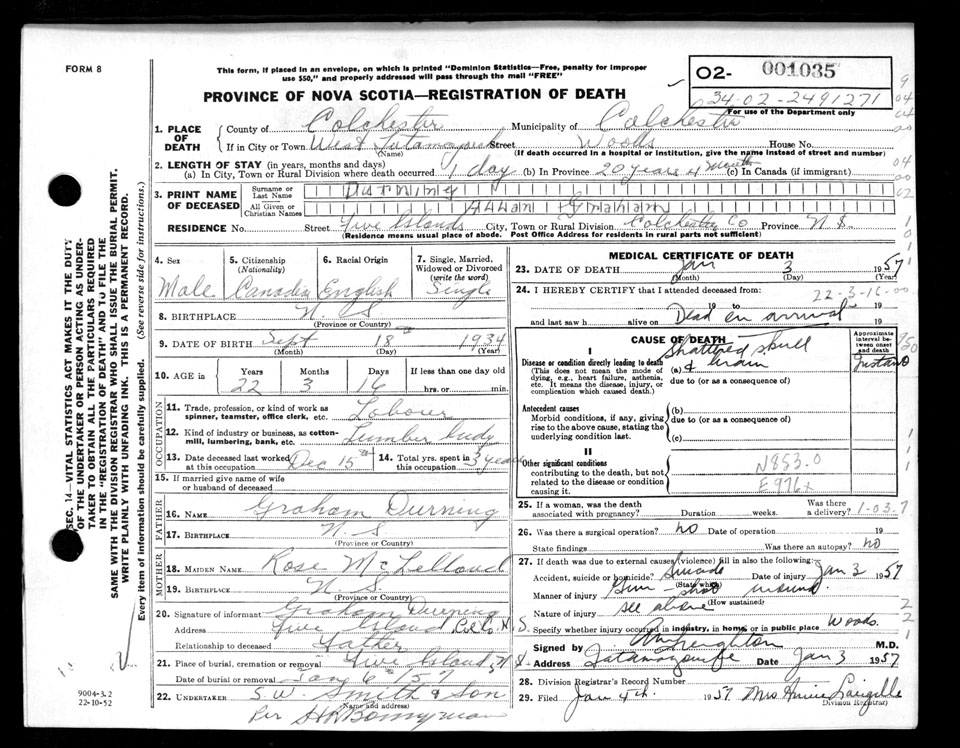 FORM 8
This form, if placed in an envelope, on which is printed "Dominion Statistics—Free, penalty for improper
use $50," and properly addressed will pass through the mail "FREE"
PROVINCE OF NOVA SCOTIA—REGISTRATION OF DEATH
02- 001035
34-02-2491271
For use of the Department only
1. PLACE OF DEATH
County of Colchester Municipality of Colchester
If in City or Town West Tatamagouche Street Woods House No.
(Name) (If death occurred in a hospital or institution, give the name instead of street and number)
2. LENGTH OF STAY (in years, months and days)
(a) In City, Town or Rural Division where death occurred 1 day (b) In Province 20 years 4 months (c) In Canada (if immigrant)
3. PRINT NAME OF DECEASED
Surname or Last Name Durning
All Given or Christian Names Allan Graham
RESIDENCE No. Street Five Islands City, Town or Rural Division Colchester Co Province N S.
(Residence means usual place of abode. Post Office Address for residents in rural parts not sufficient)
4. Sex
Male
5. Citizenship
(Nationality)
Canadian
6. Racial Origin
English
7. Single, Married, Widowed or Divorced
(write the word)
Single
8. BIRTHPLACE N. S
(Province or Country)
9. DATE OF BIRTH Sept 18 1934
(Month) (Day) (Year)
10. AGE in Years Months Days If less than one day old
22 3 16 hrs. or min.
OCCUPATION
11. Trade, profession, or kind of work as
spinner, teamster, office clerk, etc. Labour
12. Kind of industry or business, as cotton-
mill, lumbering, bank, etc. Lumber Indy
13. Date deceased last worked
at this occupation Dec 15th
14. Total yrs. spent in
this occupation 3 years
15. If married give name of wife
or husband of deceased
FATHER
16. NAME Graham Durning
17. BIRTHPLACE N S
(Province or Country)
MOTHER
18. MAIDEN NAME Rose McLelland
19. BIRTHPLACE N. S
(Province or Country)
20. Signature of informant Graham Durning
Address Five Island Col Co N. S.
Relationship to deceased Father
21. Place of burial, cremation or removal Five Island
Date of burial or removal Jan 6 57
22. UNDERTAKER S. W. Smith & Son
(Name and address)
Per Bonnyman
MEDICAL CERTIFICATE OF DEATH
23. DATE OF DEATH Jan 3 1957
(Month) (Day) (Year)
24. I HEREBY CERTIFY that I attended deceased from:
22-3-16-00
19 to 19
and last saw h alive on Dead on arrival 19
CAUSE OF DEATH
Approximate interval between onset and death
I
Disease or condition directly leading to death
(This does not mean the mode of dying, e.g., heart failure, asthenia, etc. It means the disease, injury, or complication which caused death.)
(a) Shattered skull
& brain
Instant
due to (or as a consequence of)
Antecedent causes
Morbid conditions, if any, giving rise to the above cause, stating the underlying condition last.
(b)
due to (or as a consequence of)
(c)
II
Other significant conditions
contributing to the death, but not related to the disease or condition causing it.
N853.0
E976x
25. If a woman, was the death
associated with pregnancy? Duration weeks. Was there a delivery?
1-03.7
26. Was there a surgical operation? no Date of operation 19
State findings Was there an autopsy? no
27. If death was due to external causes (violence) fill in also the following:
Accident, suicide or homicide? Suicide Date of injury Jan 3 1957
(State which)
Manner of injury Gun-shot wound.
(How sustained)
Nature of injury see above
Specify whether injury occurred in industry, in home, or in public place Woods.
Signed by M.D.
Address Tatamagouche Date Jan 3 1957
28. Division Registrar's Record Number
29. Filed Jan 4th. 1957 Mrs Annie Langille
Division Registrar
SEC. 14—VITAL STATISTICS ACT MAKES IT THE DUTY
OF THE UNDERTAKER OR PERSON ACTING AS UNDER-
TAKER TO OBTAIN ALL THE PARTICULARS REQUIRED
IN THE "REGISTRATION OF DEATH" AND TO FILE THE
SAME WITH THE DIVISION REGISTRAR WHO SHALL ISSUE THE BURIAL PERMIT.
WRITE PLAINLY WITH UNFADING INK. THIS IS A PERMANENT RECORD.
Every item of information should be carefully supplied. (See reverse side for instructions.)
9004-3.2
22-10-52